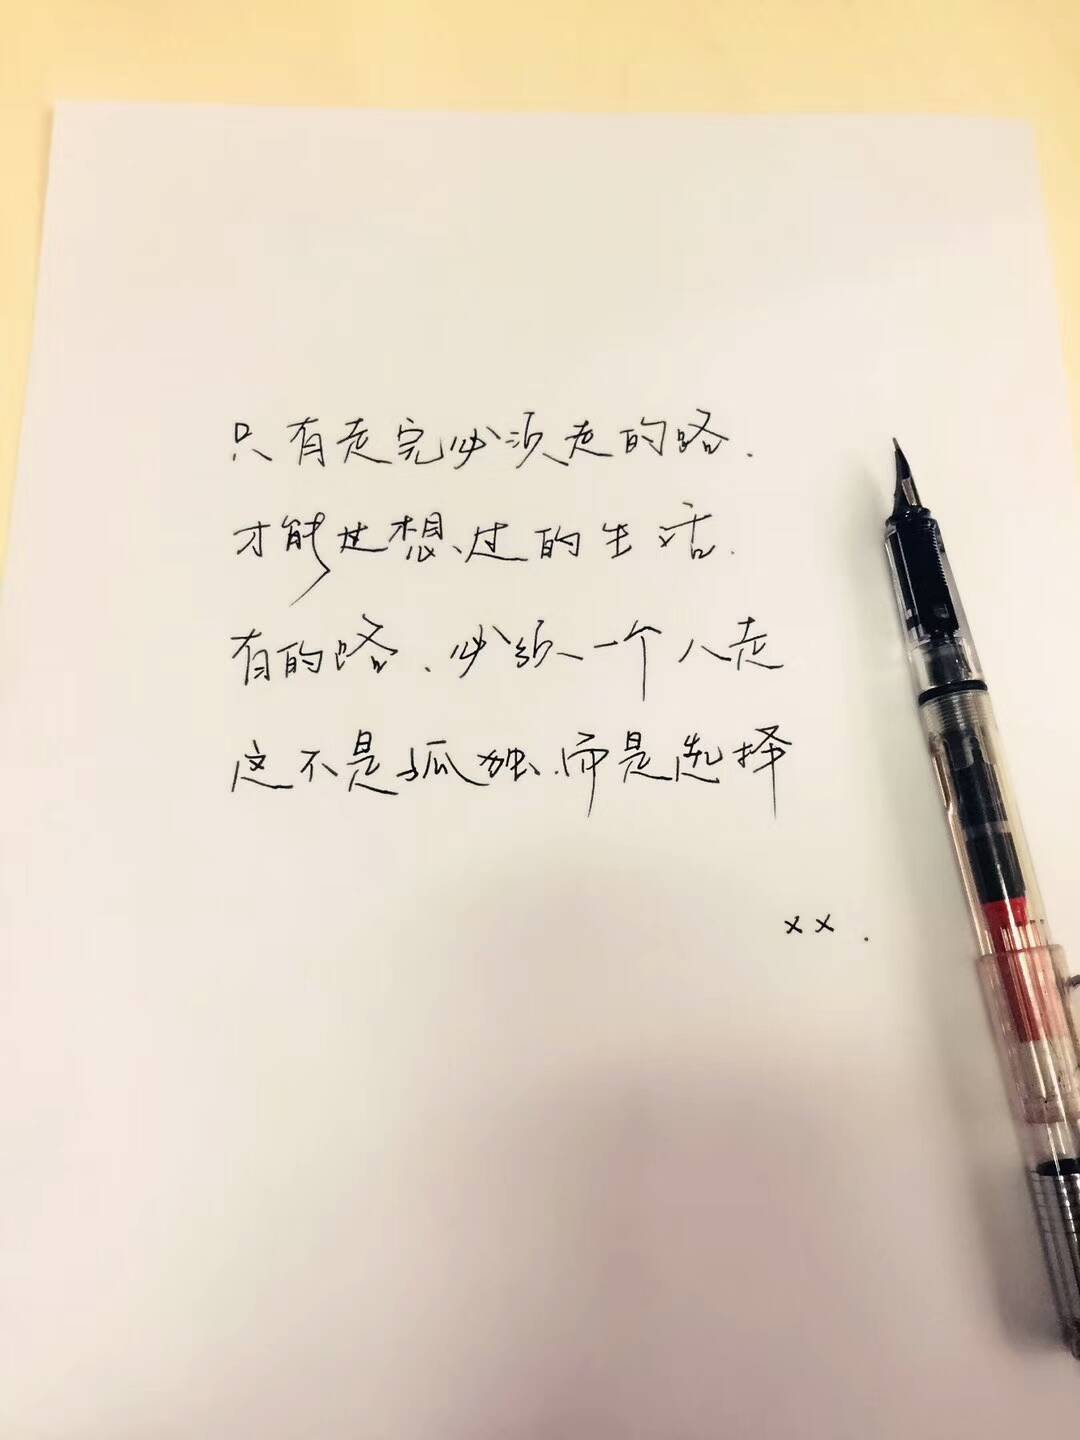 只有走完必须走的路.
才能过想过的生活.
有的路.必须一个人走
这不是孤独.而是选择
xx.